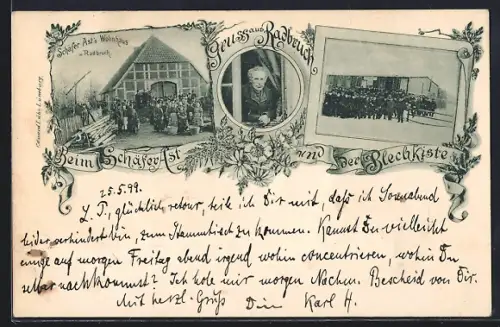 Schäfer Ast's Wohnhaus
in Radbruch.
Gruss aus Radbruch
Beim Schäfer Ast und der Blechkiste
25.5.99.
L. P., glücklich retour, teile ich Dir mit, daß ich Sonnabend
leider verhindert bin, zum Stammtisch zu kommen. Kannst Du vielleicht
einige auf morgen Freitag abend irgend wohin concentrieren, wohin Du
aber nachkommst? Ich hole mir morgen Nachm. Bescheid von Dir.
Mit herzl. Gruß Dein Karl H.